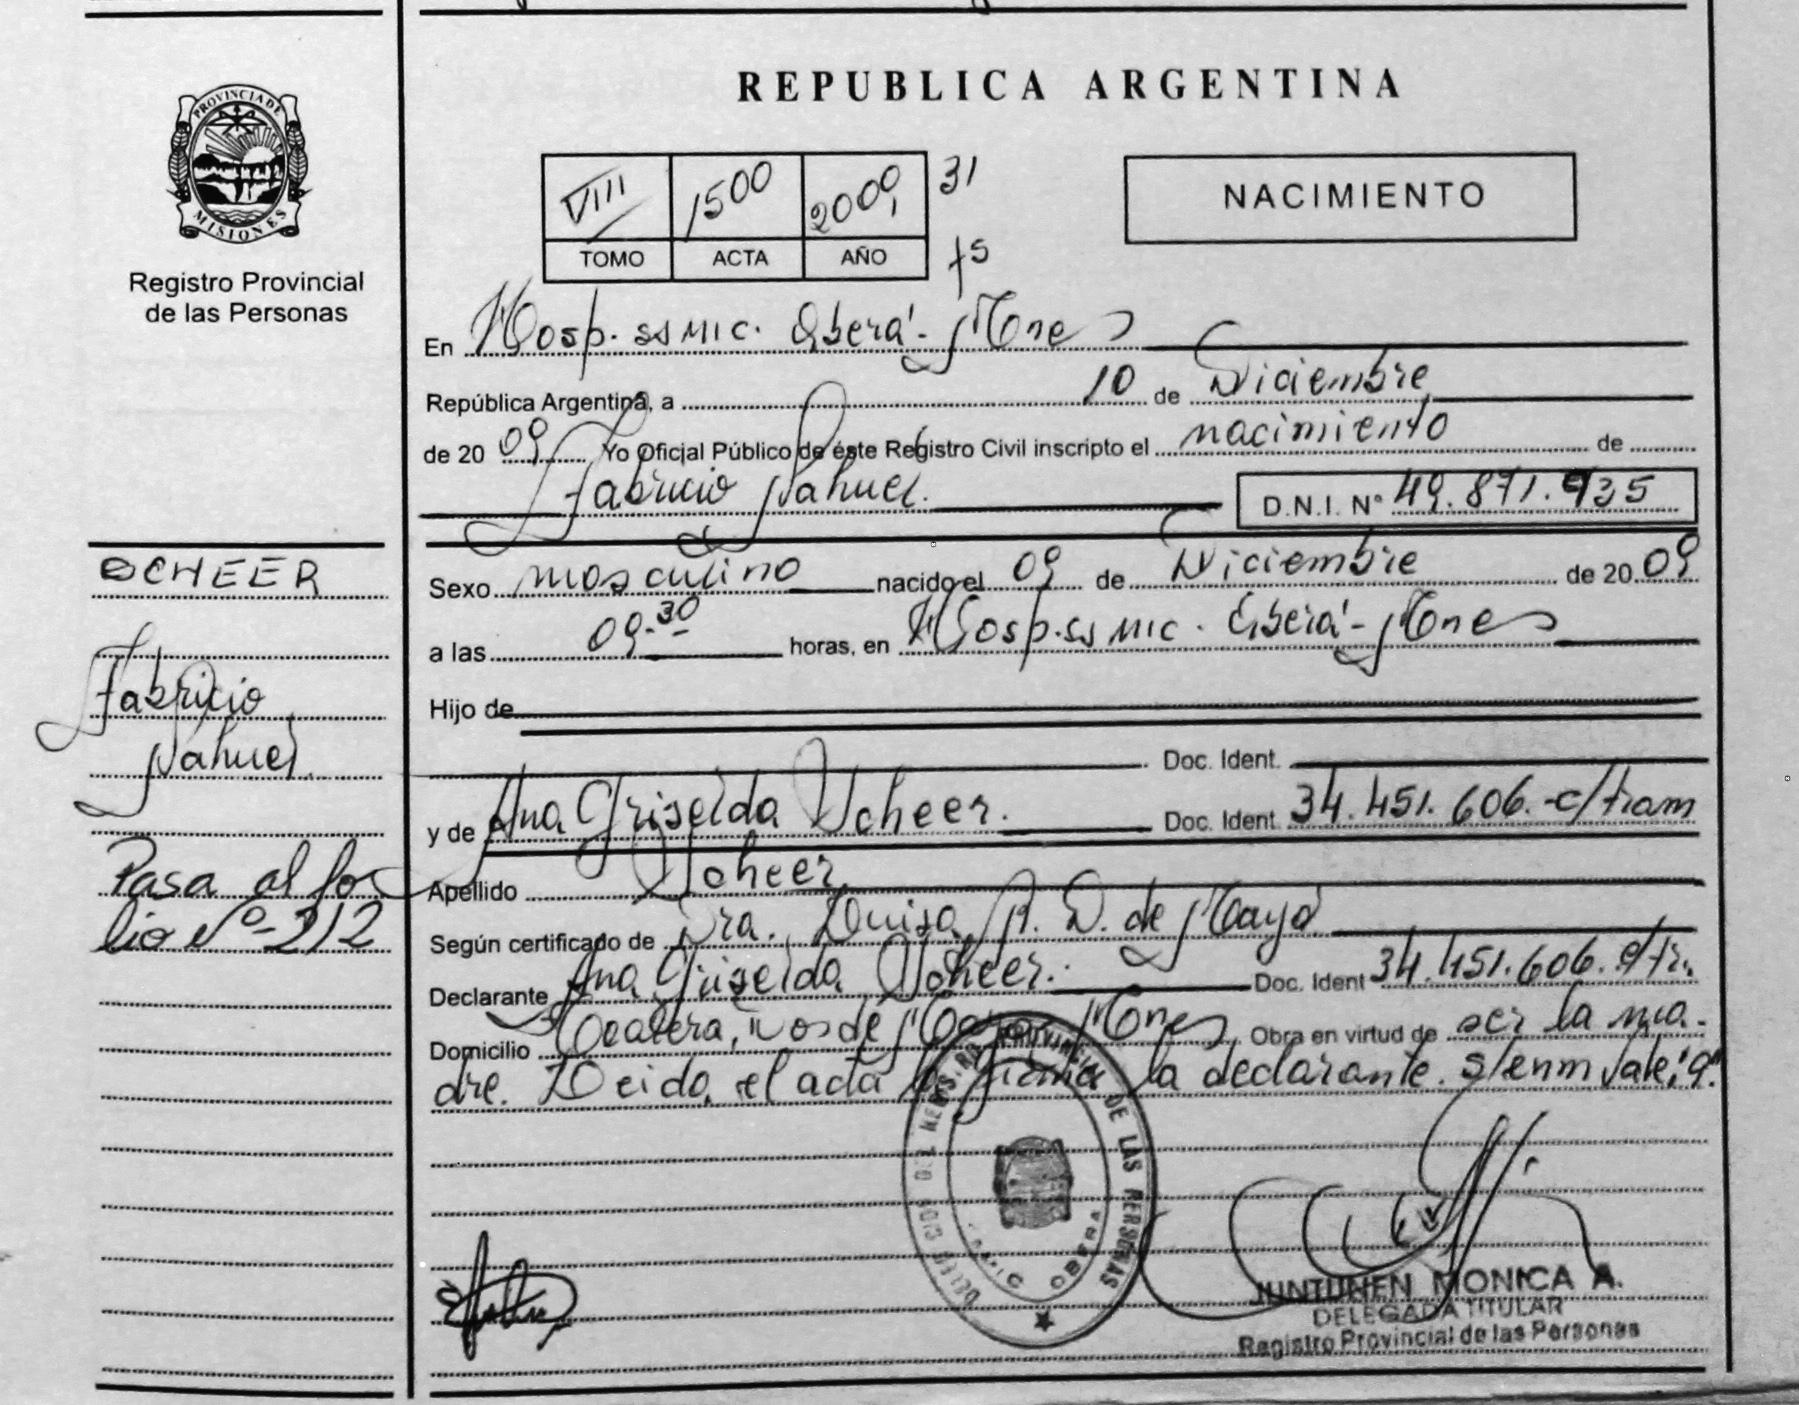 REPUBLICA ARGENTINA
PROVINCIA DE
MISIONES
Registro Provincial
de las Personas
VIII 1500 2009 31
TOMO ACTA AÑO 75
NACIMIENTO
En Hosp. ss MIC. Oberá - Mnes
República Argentina, a 10 de Diciembre
de 20 09 Yo Oficial Público de éste Registro Civil inscripto el nacimiento de
Fabricio Nahuel. D.N.I. Nº 49.871.935
SCHEER
Fabricio
Nahuel.
Pasa al fo
lio Nº 212
Sexo masculino nacido el 09 de Diciembre de 20 09
a las 09.30 horas, en Hosp. ss MIC. Oberá - Mnes
Hijo de
Doc. Ident.
y de Ana Griselda Scheer. Doc. Ident. 34.451.606.-c/tram
Apellido Scheer
Según certificado de Dra. Luisa D. de
Declarante Ana Griselda Scheer. Doc. Ident 34.451.606. c/tr.
Domicilio de Mnes Obra en virtud de ser la ma-
dre. Leida el acta la firma la declarante. s/enm Vale: 9"
PROVINCIAL DE LAS PERSONAS
OBERA
JUNTUNEN MONICA A.
DELEGADA TITULAR
Registro Provincial de las Personas